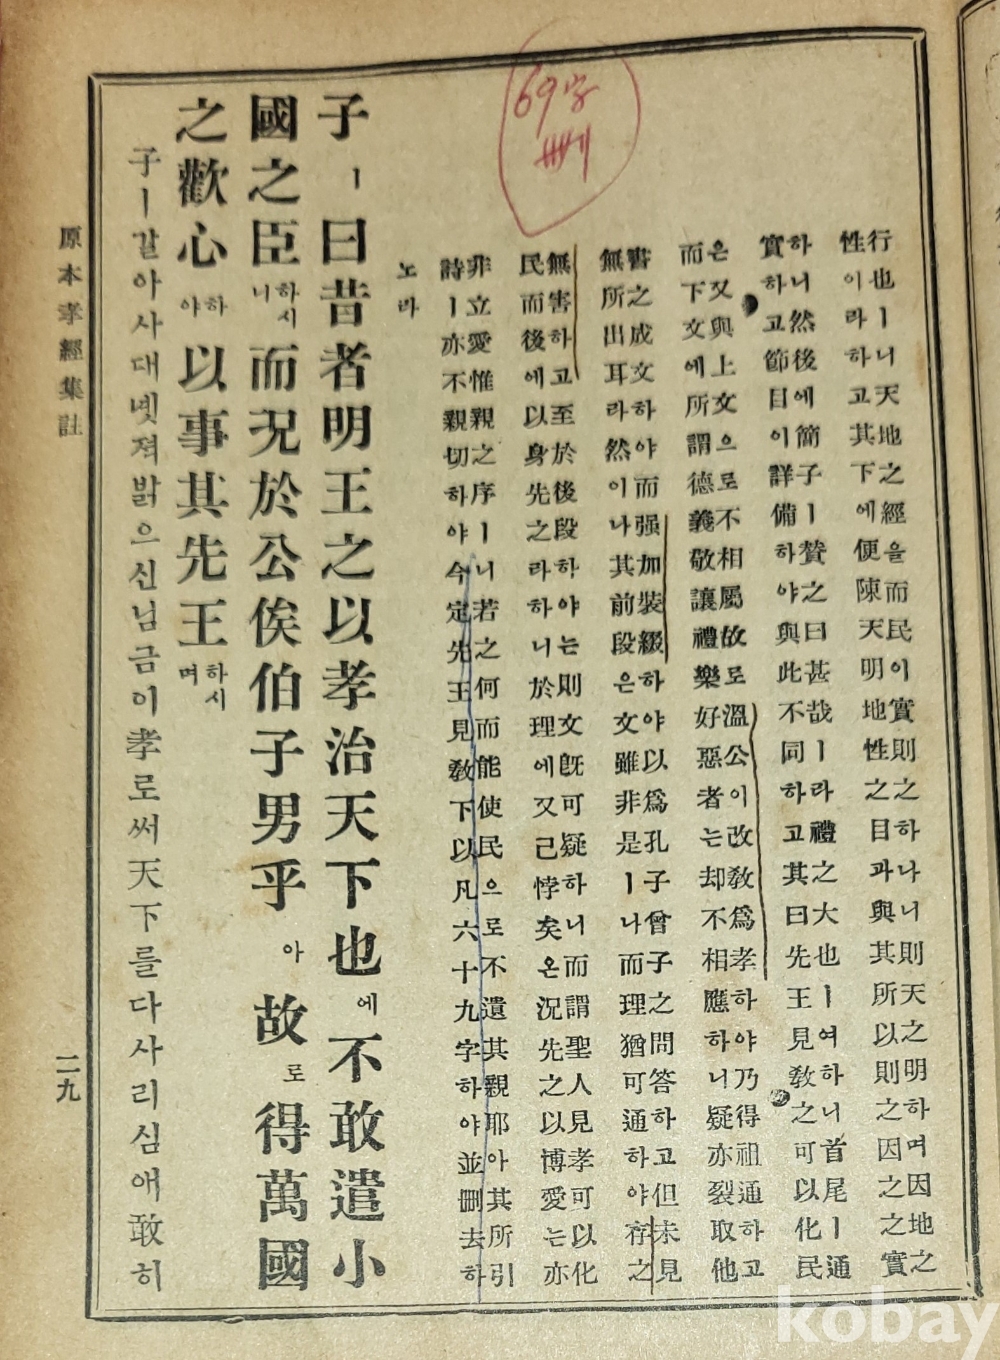 69字
刪
行也ㅣ니天地之經을而民이實則之하나니則天之明하며因地之
性이라하고其下에便陳天明地性之目과與其所以則之因之之實
하니然後에簡子ㅣ贊之曰甚哉ㅣ라禮之大也ㅣ여하니首尾ㅣ通
實하고節目이詳備하야與此不同하고其曰先王見敎之可以化民
은又與上文으로不相屬故로溫公이改敎爲孝하야乃得祖通하고
而下文에所謂德義敬讓禮樂好惡者는却不相應하니疑亦裂取他
書之成文하야而强加裝綴하야以爲孔子曾子之問答하고但未見
無所出耳라然이나其前段은文雖非是ㅣ나而理猶可通하야存之
無害하고至於後段하야는則文旣可疑하니而謂聖人見孝可以化
民而後에以身先之라하니於理에又己悖矣온況先之以博愛는亦
非立愛惟親之序ㅣ니若之何而能使民으로不遺其親耶아其所引
詩ㅣ亦不親切하야今定先王見敎下以凡六十九字하야並刪去하
노라
子ㅣ曰昔者明王之以孝治天下也에不敢遣小
國之臣하시니而況於公侯伯子男乎아故로得萬國
之歡心하야以事其先王하시며
子ㅣ갈아사대녯젹밝으신님금이孝로써天下를다사리심애敢히
原本孝經集註
二九
kobay